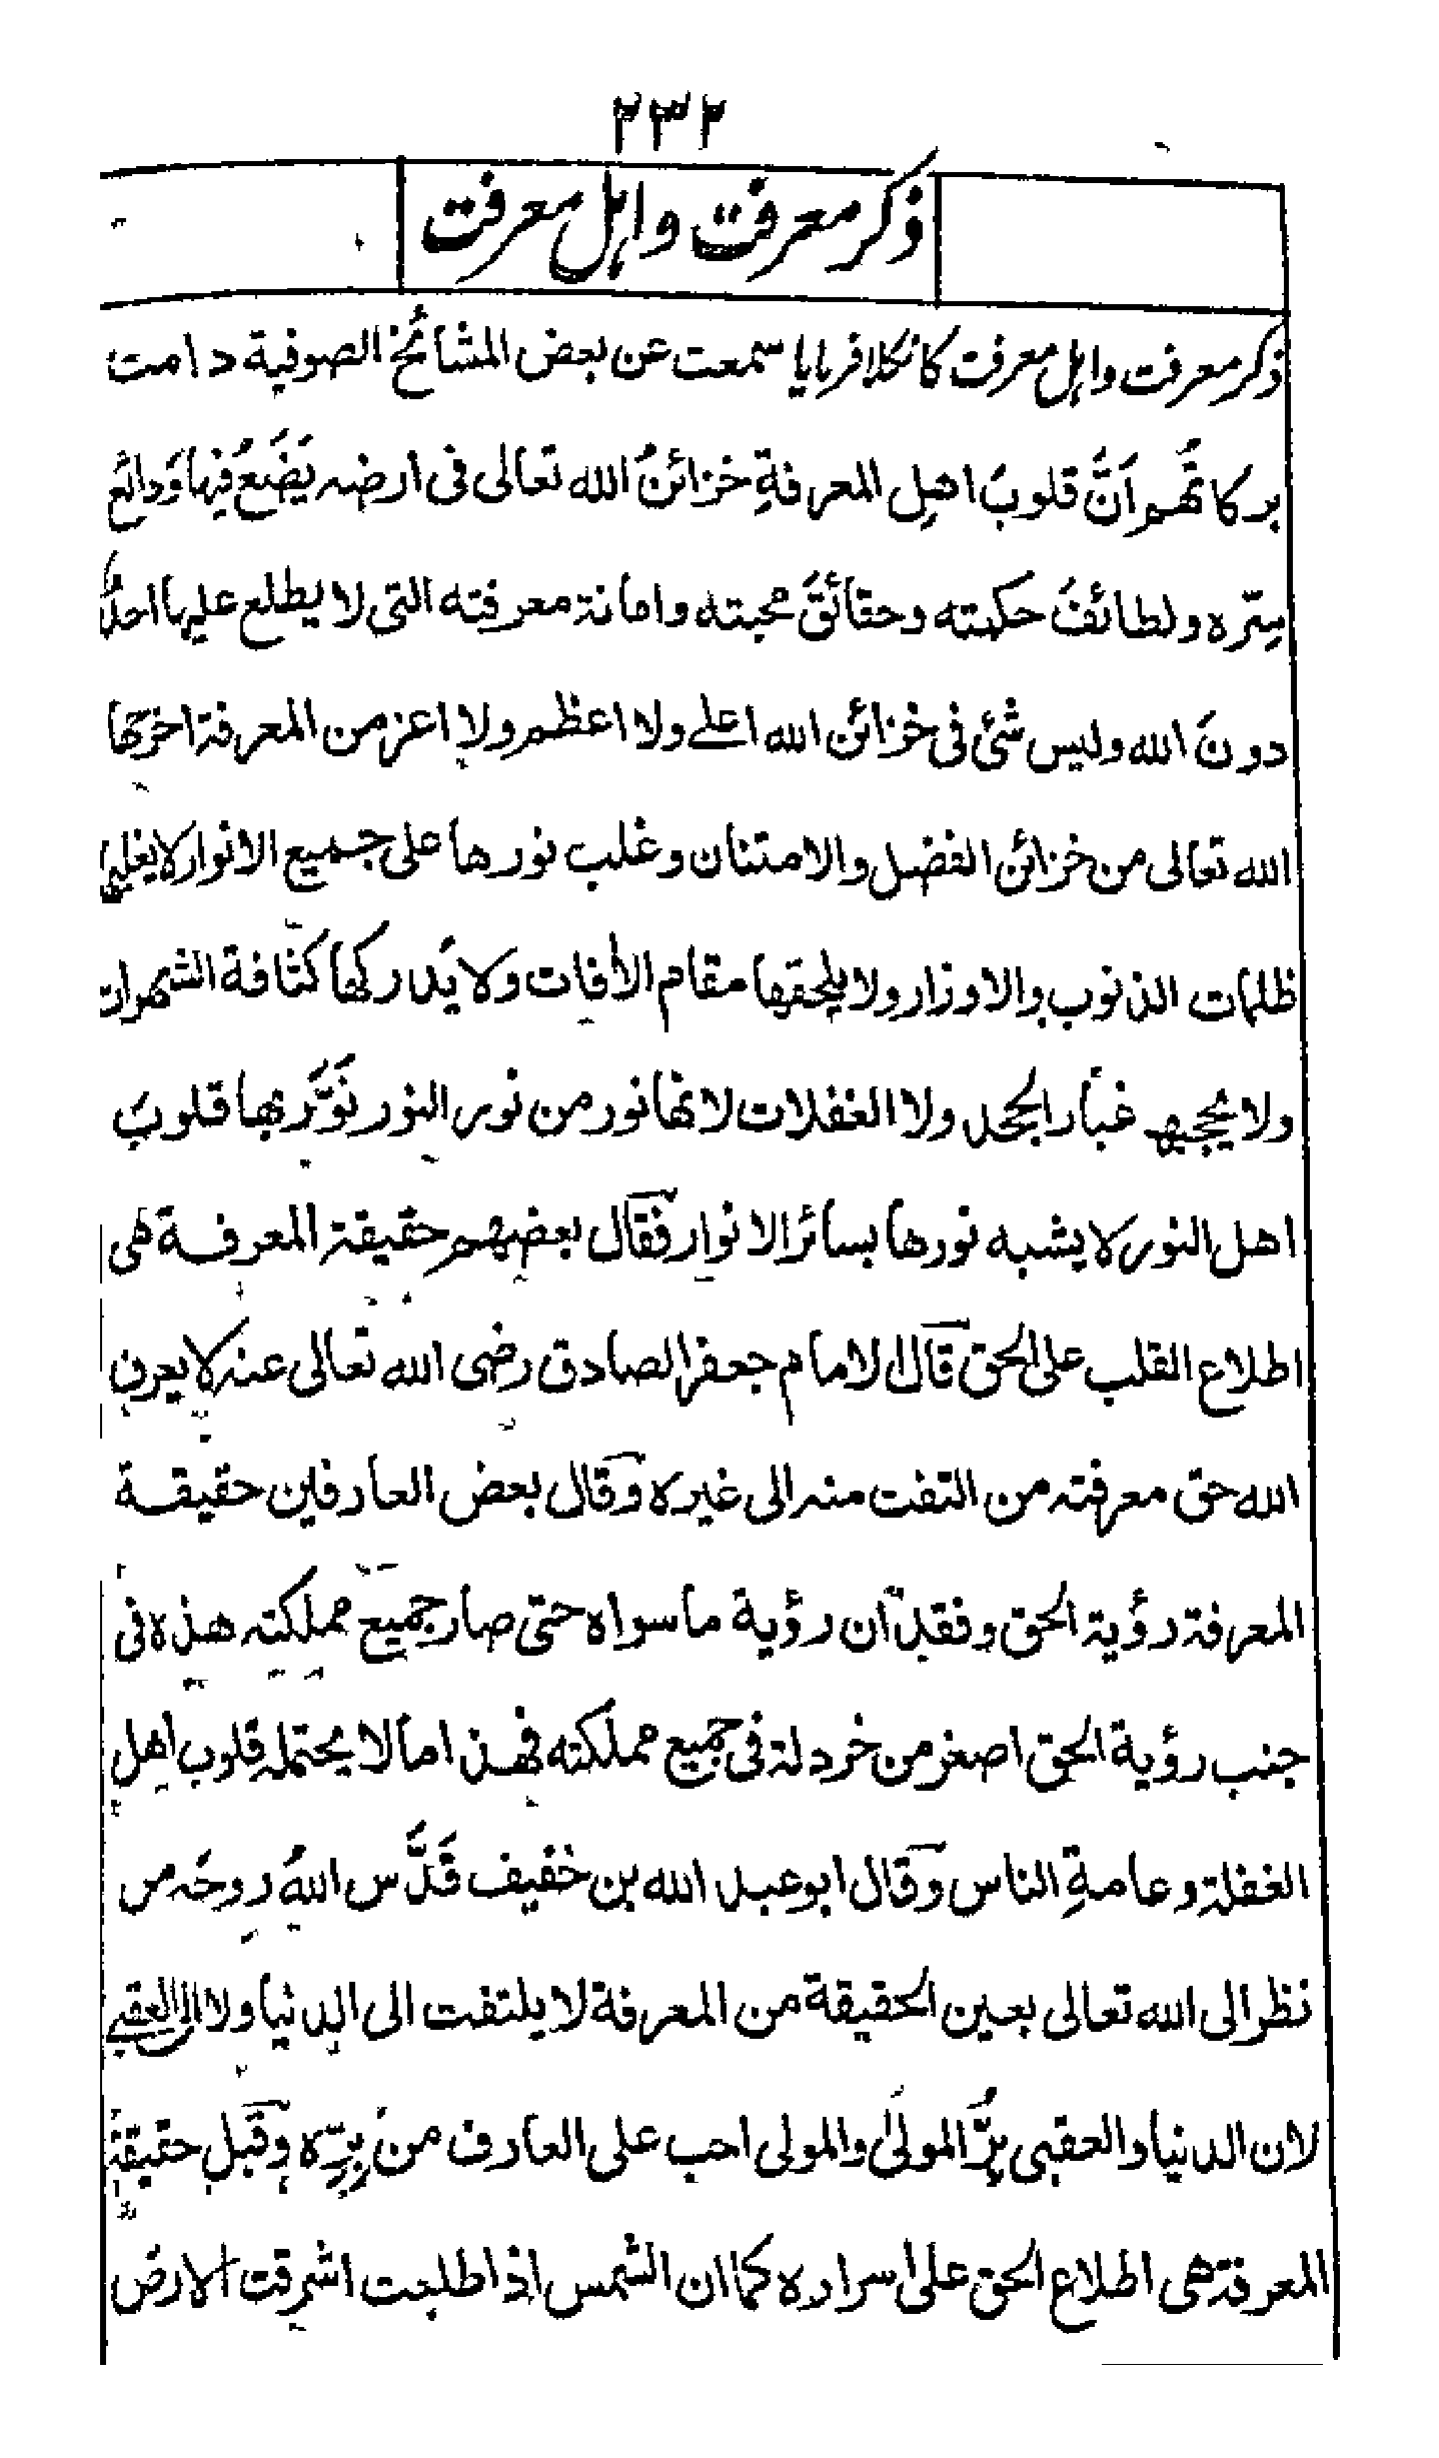 ۲۳۲
ذکر معرفت واہل معرفت
ذکر معرفت واہل معرفت کا نکلا فرمایا سمعت عن بعض المشائخ الصوفیة دامت
برکاتُهم اَنَّ قلوبَ اهلِ المعرفةِ خزائنُ الله تعالى فى ارضه يَضَعُ فيها وَدائع
سِرّه ولطائفَ حكمته وحقائقَ محبته وامانة معرفته التى لا يطلع عليها احدٌ
دونَ الله وليس شئ فى خزائن الله اعلے ولا اعظم ولا اعز من المعرفة اخرجها
الله تعالى من خزائن الفضل والامتنان وغلب نورها على جميع الانوار لا يغلبها
ظلمات الذنوب والاوزار ولا يلحقها مقام الأفات ولا يُدركها كثافة الشهوات
ولا غبار الجحد ولا الغفلات لانها نور من نور النور نَوَّر بها قلوبَ
اهل النور لا يشبه نورها بسائر الانوار فقال بعضهم حقيقة المعرفة هى
اطلاع القلب على الحق قال الامام جعفر الصادق رضى الله تعالى عنه لا يعرف
الله حق معرفته من التفت منه الى غيره وقال بعض العارفين حقيقة
المعرفة رؤية الحق وفقدان رؤية ما سواه حتى صار جميع مملكته هذه فى
جنب رؤية الحق اصغر من خردلة فى جميع مملكته فهذا مما لا يحتمله قلوب اهل
الغفلة وعامةِ الناس وقال ابو عبد الله بن خفيف قَدَّس اللهُ روحَه من
نظر الى الله تعالى بعين الحقيقة من المعرفة لا يلتفت الى الدنيا ولا الى العقبے
لان الدنيا والعقبى بِرُّ المولىٰ والمولى احب على العارف من بِرِّه وقيل حقيقة
المعرفة هى اطلاع الحق على اسراره كما ان الشمس اذا طلعت اشرقت الارض